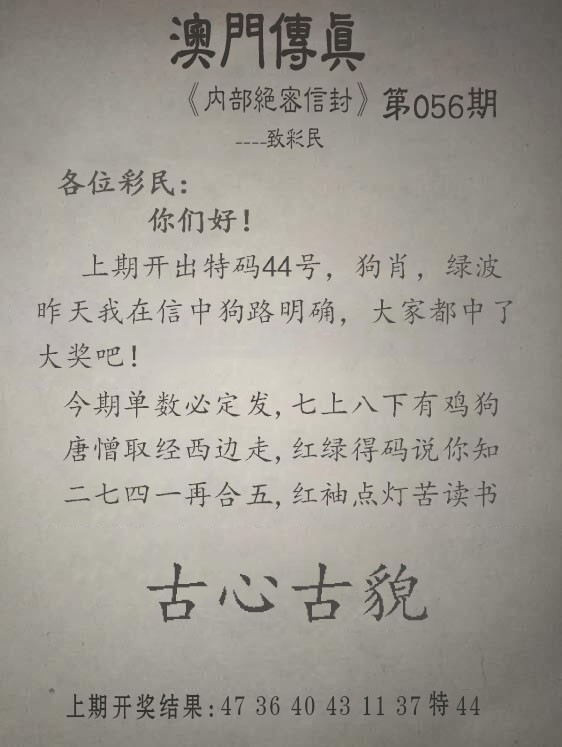 澳門傳真
《内部絕密信封》第056期
----致彩民
各位彩民:
你们好!
上期开出特码44号，狗肖，绿波
昨天我在信中狗路明确，大家都中了
大奖吧!
今期单数必定发,七上八下有鸡狗
唐憎取经西边走,红绿得码说你知
二七四一再合五,红袖点灯苦读书
古心古貌
上期开奖结果:47 36 40 43 11 37 特 44